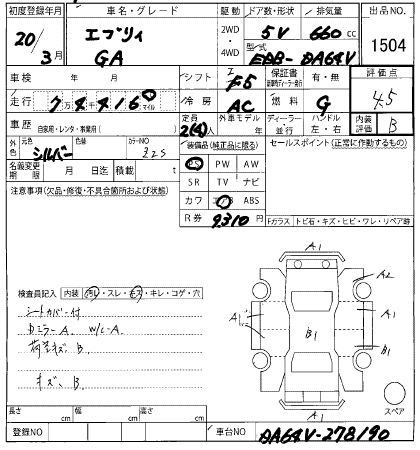 初度登録年月 車名・グレード 駆動 ドア数・形状 排気量 出品NO
20/3月 エブリィ GA 2WD・4WD 5V 660cc 1504
型式 EBD-DA64V
車検 年 月 シフト F5 保証書 有・無 評価点 4.5
走行 7万4千416 マイル 冷房 AC 燃料 G
車歴 自家用・レンタ・事業用( ) 定員 2(4)人 外車モデル 年 ディーラー・並行 ハンドル 左・右 内装評価 B
外色 元色 シルバー 色替 カラーNO Z2S 装備品(純正品に限る) セールスポイント(正常に作動するもの)
名義変更期限 月 日迄 積載 t PS PW AW
注意事項(欠品・修復・不具合箇所および状態) SR TV ナビ
カワ エアB ABS
R券 9310円 Fガラス トビ石・キズ・ヒビ・ワレ・リペア跡
検査員記入 内装 汚レ・スレ・キズ・キレ・コゲ・穴
シートカバー付
Dミラー A. W/L-A
荷室キズ、B
キズ、B
A1
A2
A1
A1
B1
B1
A1
スペア
長さ cm 幅 cm 高さ cm
登録NO 車台NO DA64V-278190